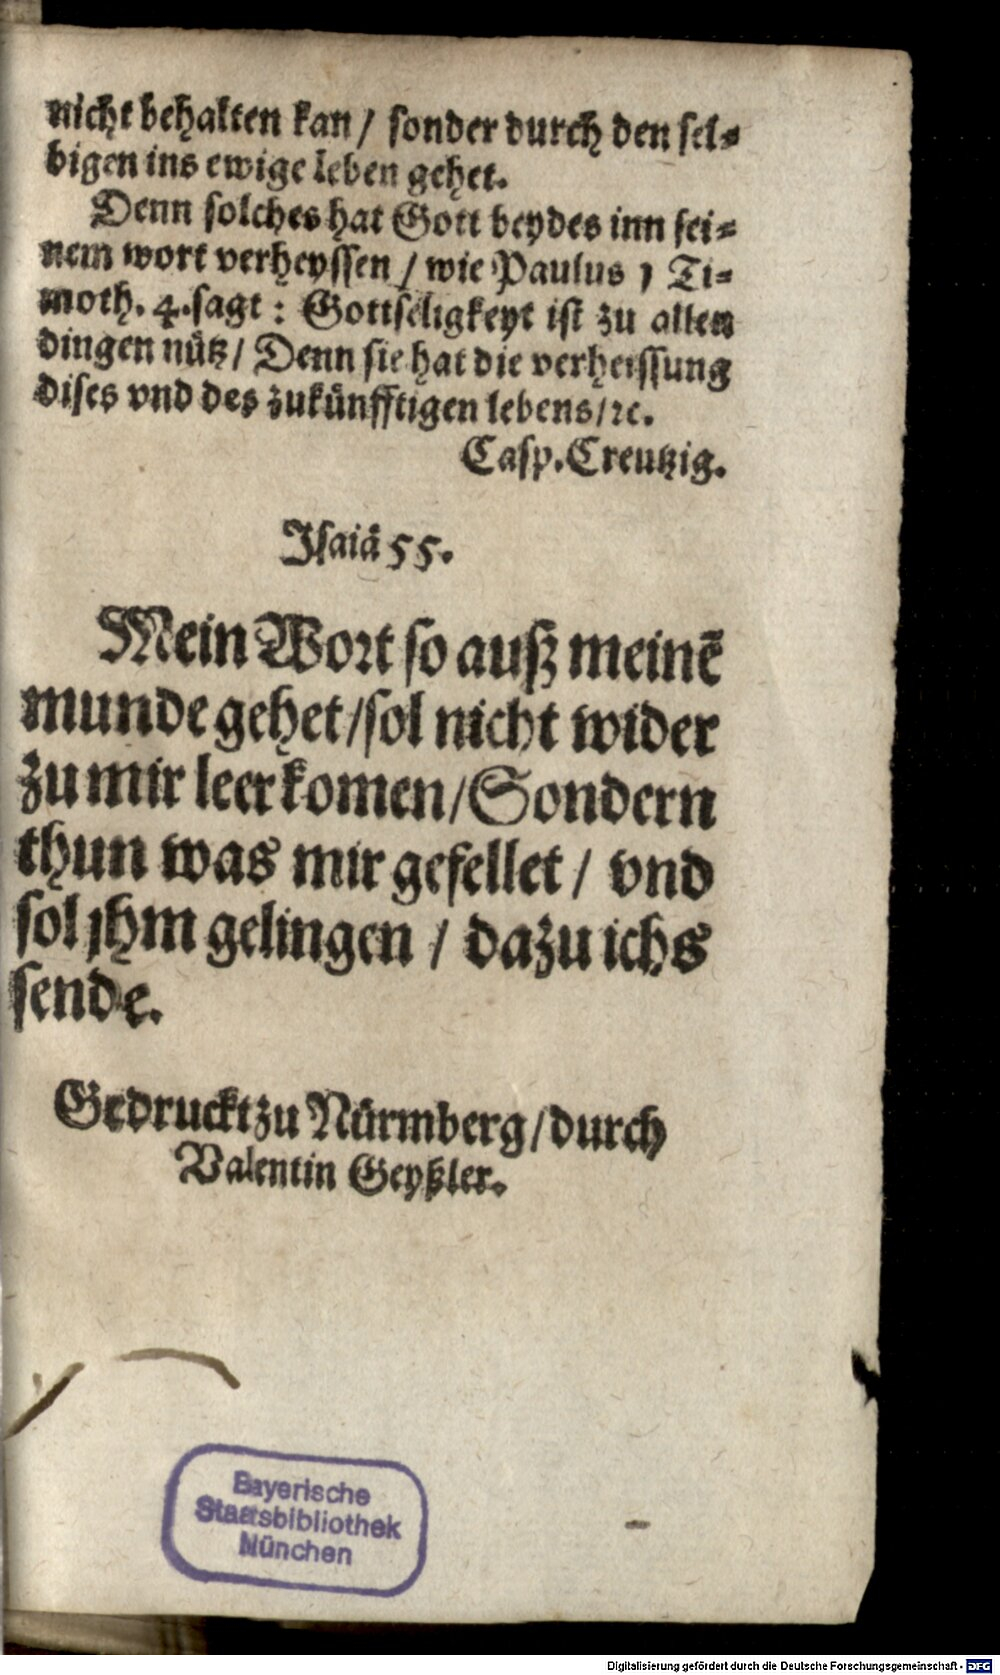 nicht behalten kan / sonder durch den sel⸗
bigen ins ewige leben gehet.
Denn solches hat Gott beydes inn sei⸗
nem wort verheyssen / wie Paulus 1 Ti⸗
moth. 4. sagt : Gottseligkeyt ist zu allen
dingen nütz / Denn sie hat die verheissung
dises vnd des zukünfftigen lebens / ꝛc.
Casp. Creutzig.
Isaiä 55.
Mein Wort so auß meinē
munde gehet / sol nicht wider
zu mir leer komen / Sondern
thun was mir gefellet / vnd
sol jhm gelingen / dazu ichs
sende.
Gedruckt zu Nürmberg / durch
Valentin Geyßler.
Bayerische
Staatsbibliothek
München
Digitalisierung gefördert durch die Deutsche Forschungsgemeinschaft - DFG